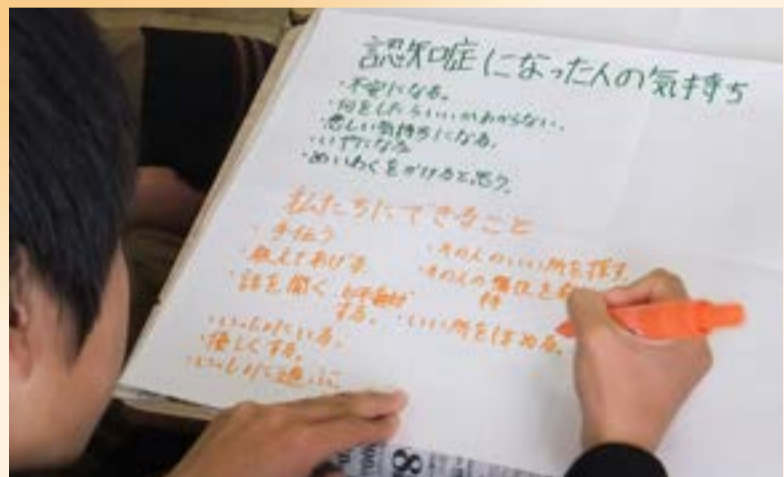 認知症になった人の気持ち
・不安になる。
・何をしたらいいかわからない。
・悲しい気持ちになる。
・いやになる
・めいわくをかけると思う。
私たちにできること
・手伝う
・教えてあげる
・話を聞く
する。
・いっしょにいる。
・優しくする。
・いっしょに遊ぶ
・その人のいい所を探す
・その人の
持
・いい所をほめる。
8